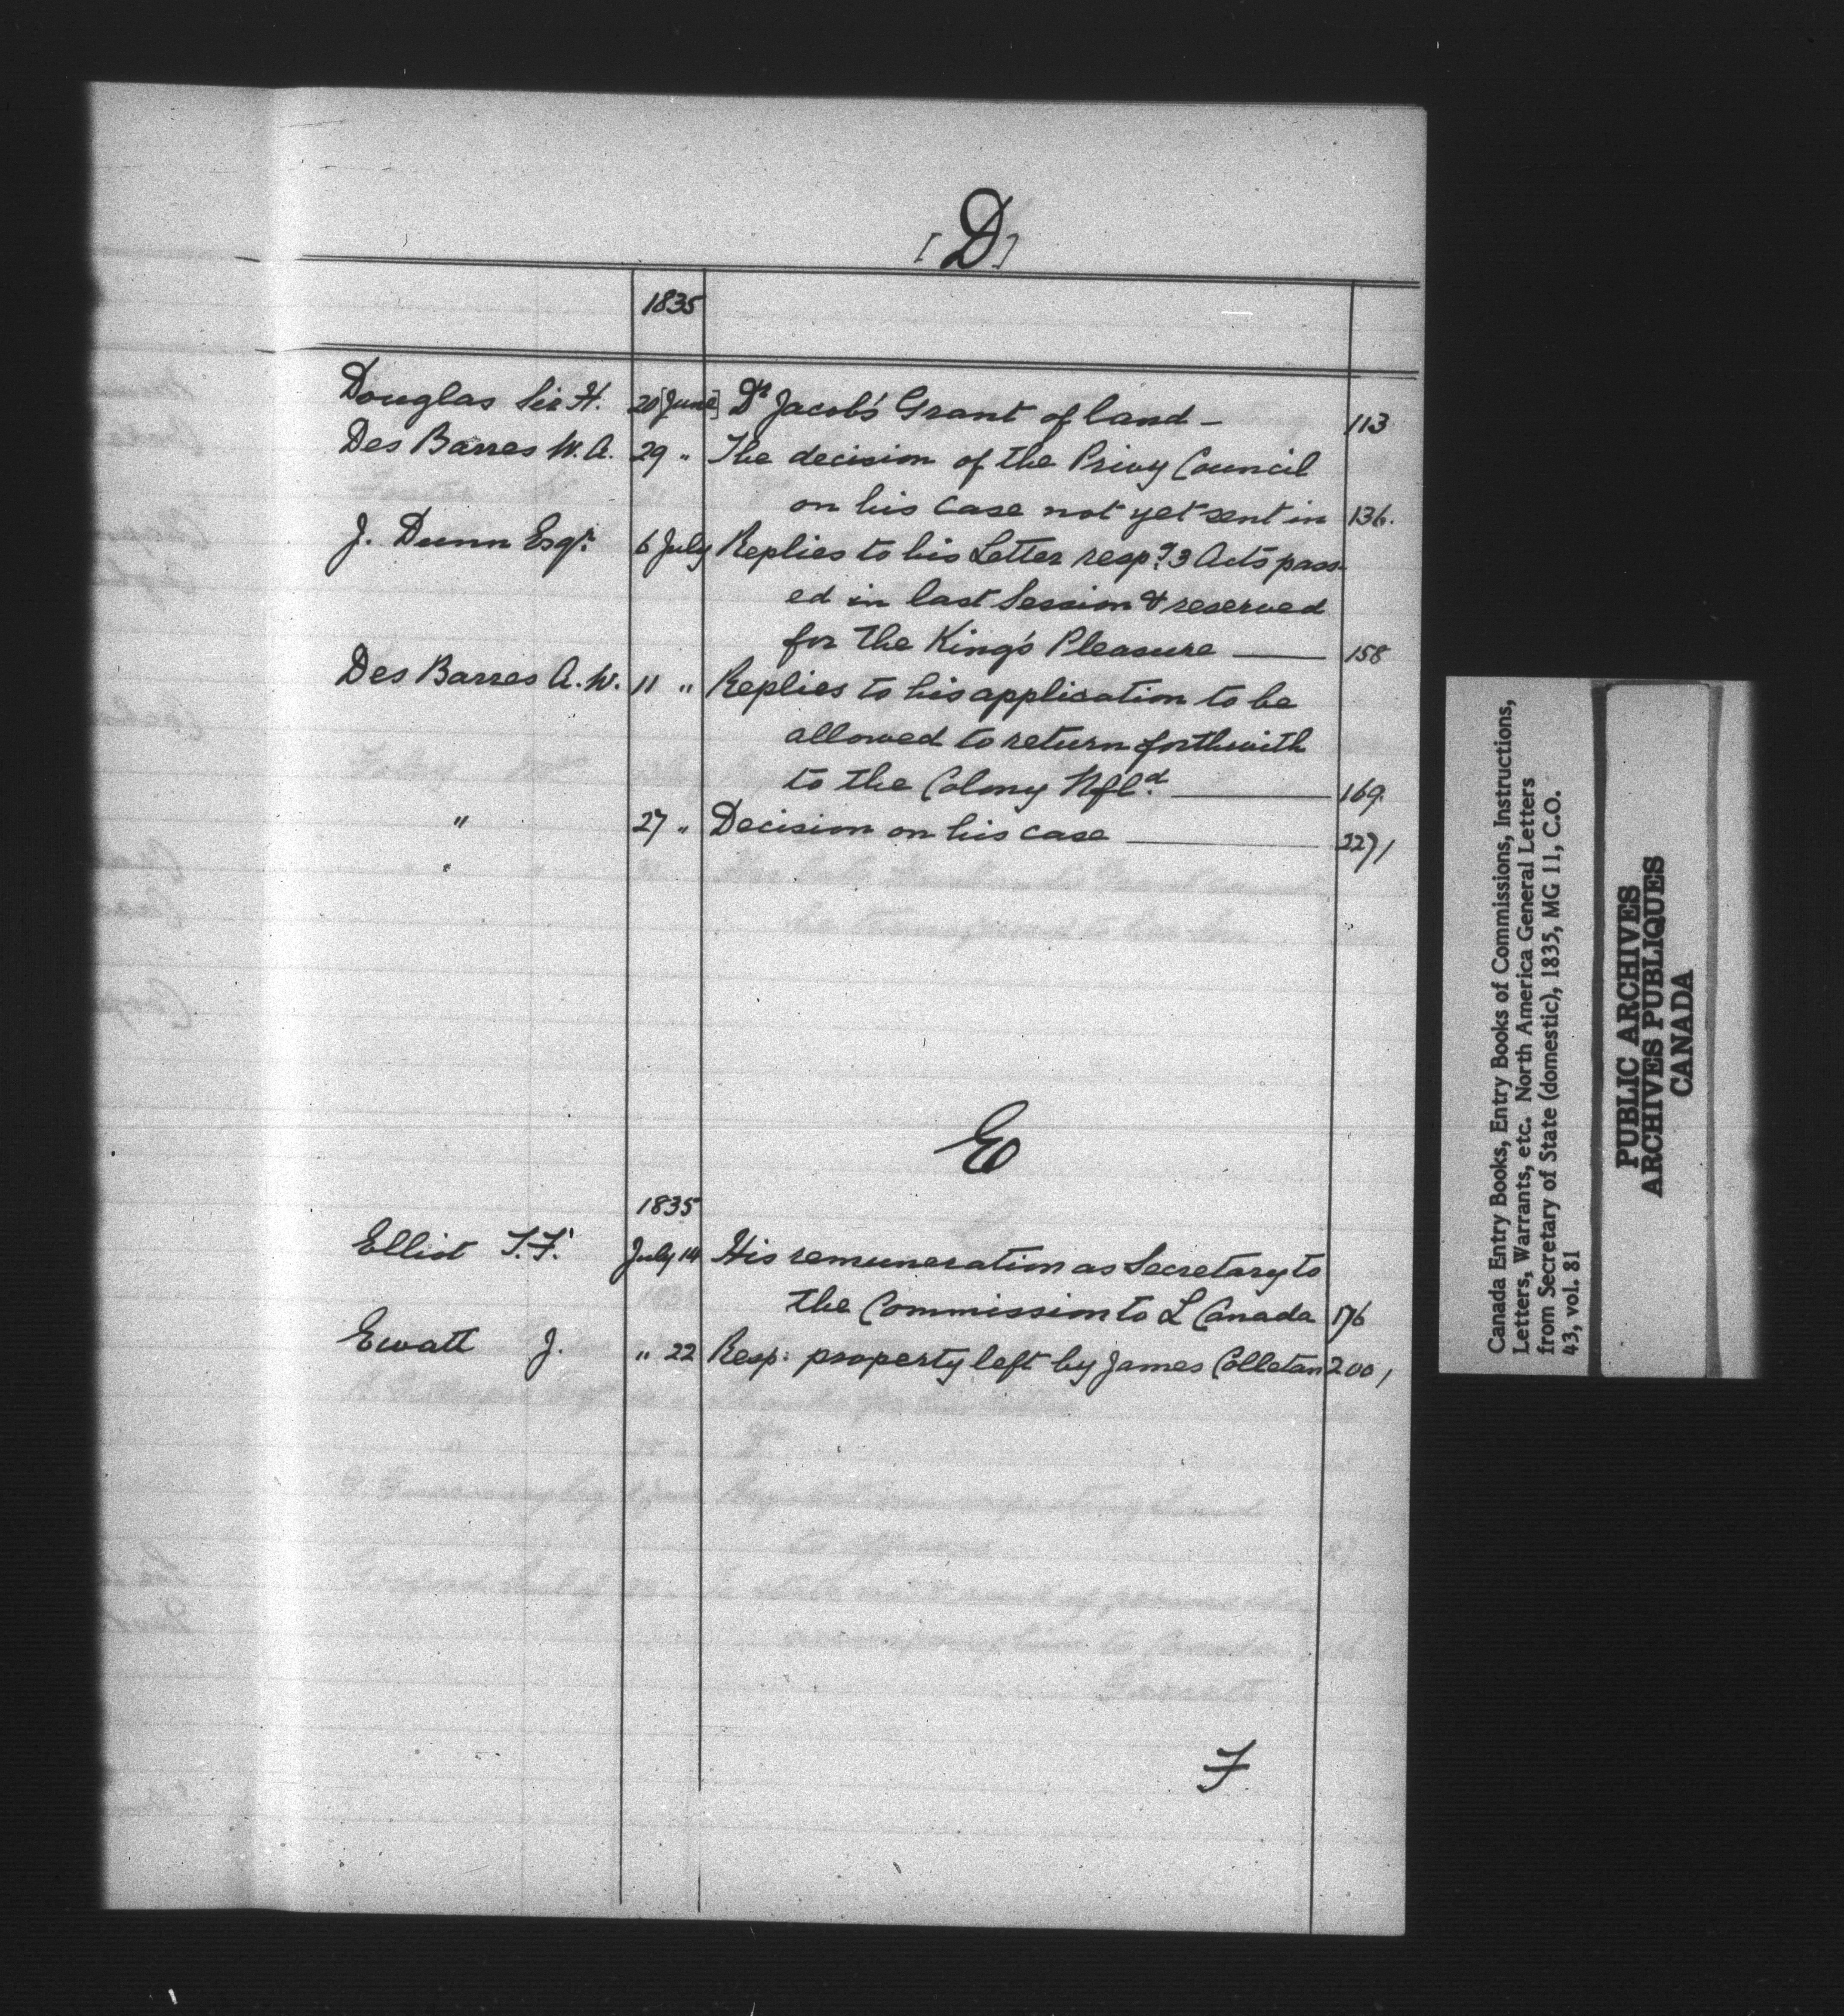 [D]
1835
Douglas Sir H. 20 [June] Dr Jacob's Grant of land – 113
Des Barres W. A. 29 " The decision of the Privy Council
on his case not yet sent in 136.
J. Dunn Esqr. 6 July Replies to his Letter respg 3 Acts pass-
ed in last Session & reserved
for the King's Pleasure — 158
Des Barres A. W. 11 " Replies to his application to be
allowed to return forthwith
to the Colony Nfld. — 169.
" 27 " Decision on his case — 227/
E
1835
Elliot T. F. July 14 His remuneration as Secretary to
the Commission to L Canada 176
Ewatt J. " 22 Resp: property left by James Colletan 200/
F
Canada Entry Books, Entry Books of Commissions, Instructions,
Letters, Warrants, etc. North America General Letters
from Secretary of State (domestic), 1835, MG 11, C.O.
43, vol. 81
PUBLIC ARCHIVES
ARCHIVES PUBLIQUES
CANADA